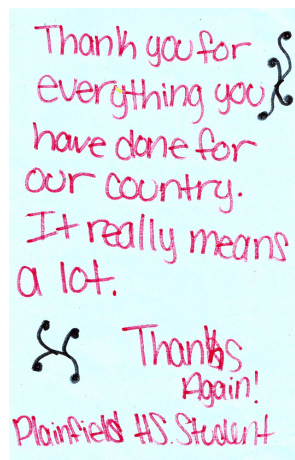 Thank you for
everything you
have done for
our country.
It really means
a lot.
Thanks
Again!
Plainfield HS. Student